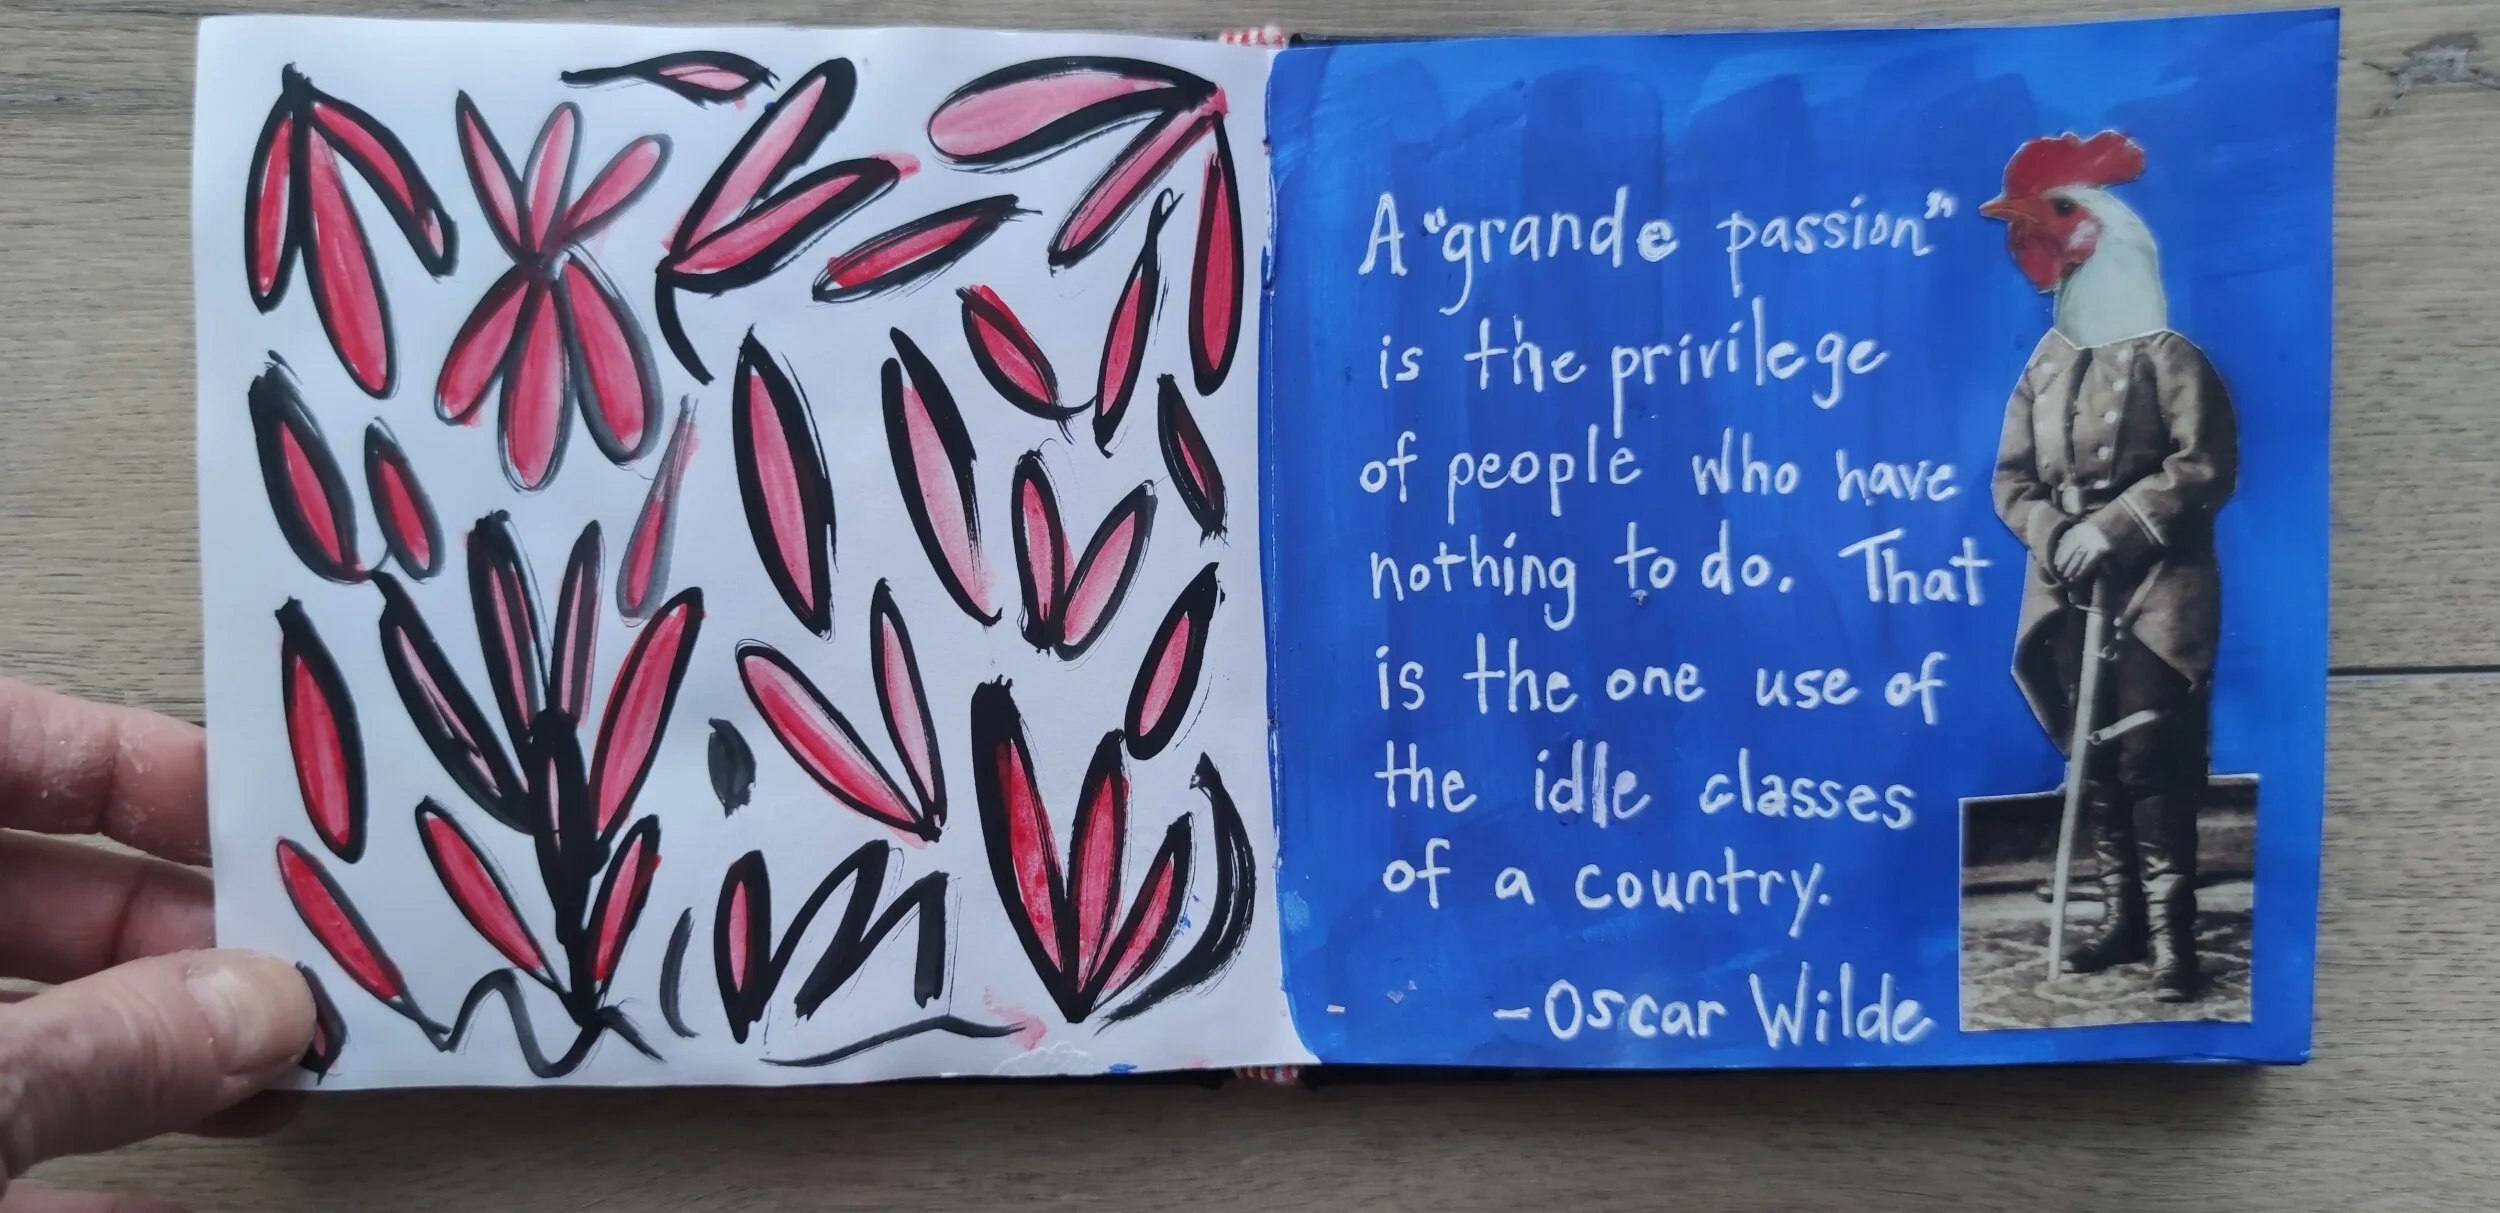 A “grande passion”
is the privilege
of people who have
nothing to do. That
is the one use of
the idle classes
of a country.
- Oscar Wilde